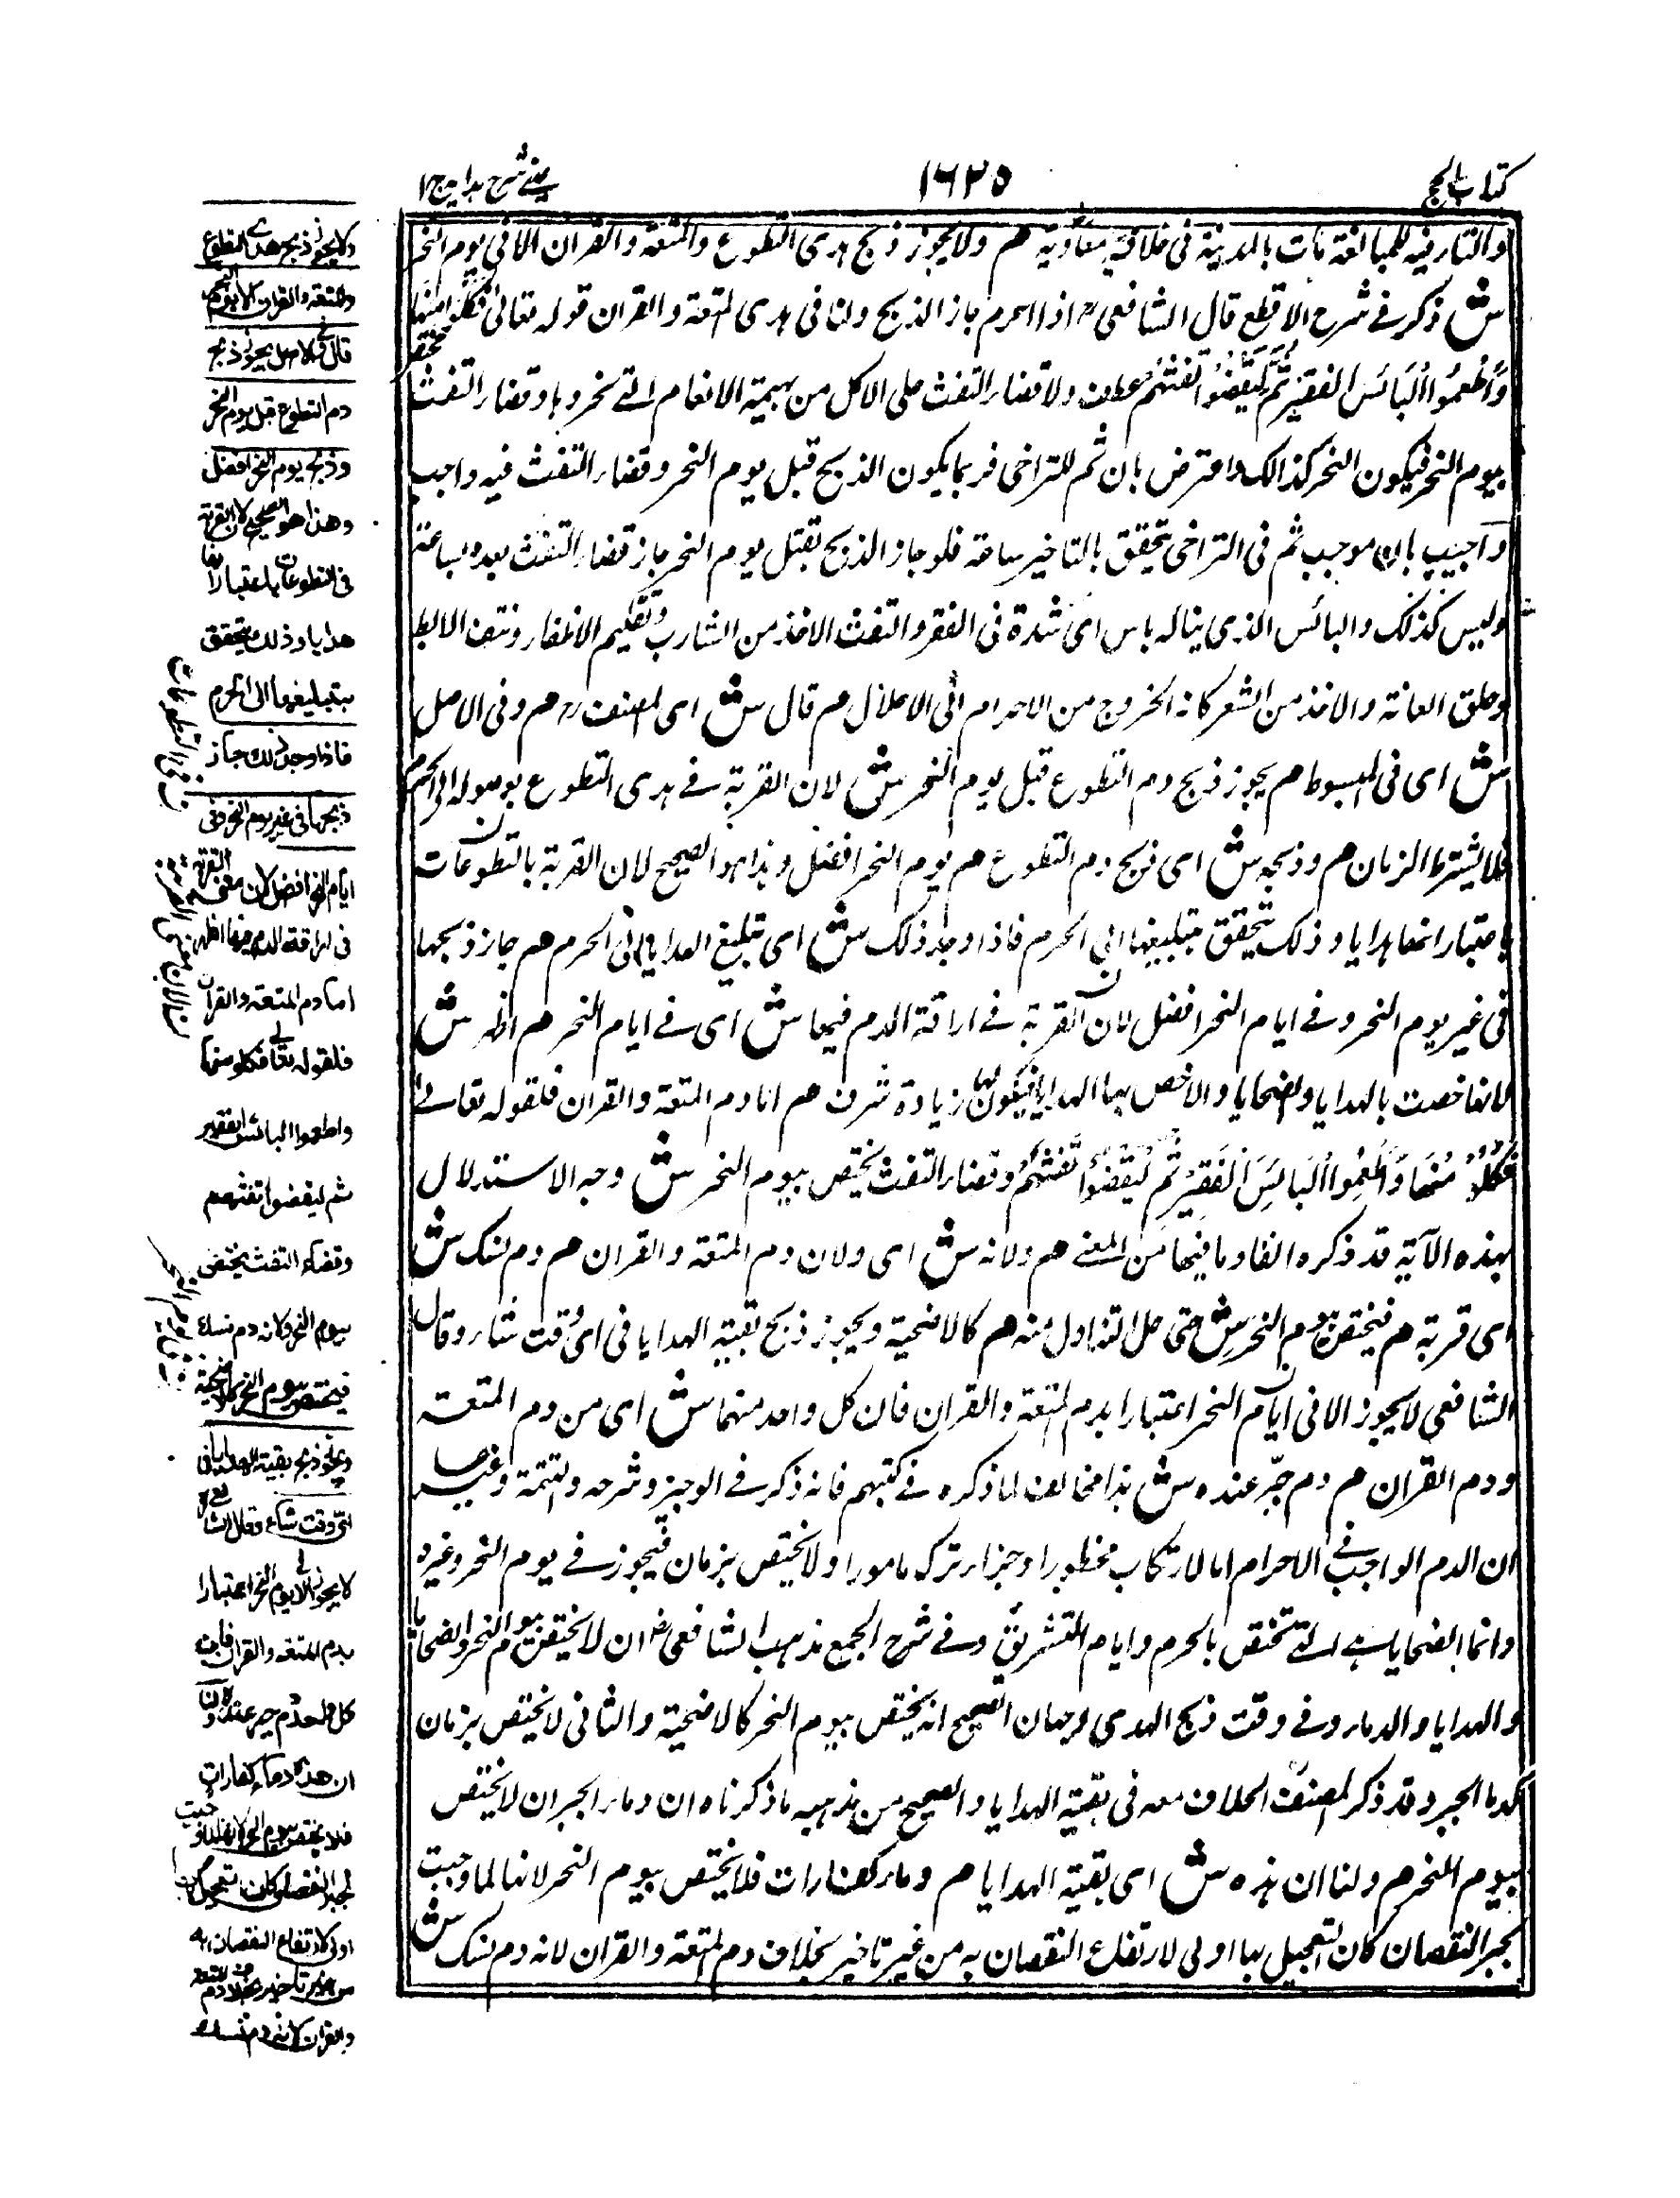 كتاب الحج
١٦٢٥
عينى شرح هداية ج ١
والتاء فيه للمبالغة مات بالمدينة فى خلافة معاوية هم ولا يجوز ذبح هدى التطوع والمتعة والقران الا فى يوم النحر
ش ذكر فى شرح الاقطع قال الشافعى اذا احرم جاز الذبح ولنا فى هدى المتعة والقران قوله تعالى فَكُلُوا مِنْهَا
وَأَطْعِمُوا الْبَائِسَ الْفَقِيرَ ثُمَّ لْيَقْضُوا تَفَثَهُمْ عطف ولا قضاء التفث على الاكل من بهيمة الانعام التى نحروها وقضاء التفث مختص
بيوم النحر فيكون النحر كذالك واعترض بان ثم للتراخى فربما يكون الذبح قبل يوم النحر وقضاء التفث فيه واجب
واجيب بان موجب ثم فى التراخى يتحقق بالتاخير ساعة فلو جاز الذبح قبل يوم النحر جاز قضاء التفث بعده بساعة
وليس كذلك والبائس الذى يناله باس اى شدة فى الفقر والتفث الاخذ من الشارب وتقليم الاظفار ونتف الابط
وحلق العانة والاخذ من الشعر كانه الخروج من الاحرام الى الاحلال هم قال ش اى المصنف هم وفى الاصل
ش اى فى المبسوط هم يجوز ذبح دم التطوع قبل يوم النحر ش لان القربة فى هدى التطوع بوصوله الى الحرم
فلا يشترط الزمان هم وذبحه ش اى ذبح دم التطوع هم يوم النحر افضل وهذا هو الصحيح لان القربة بالتطوعات
باعتبار انها هدايا وذلك يتحقق بتبليغها الى الحرم فاذا وجد ذلك ش اى تبليغ الهدايا الى الحرم هم جاز ذبحها
فى غير يوم النحر وفى ايام النحر افضل لان القربة فى اراقة الدم فيها ش اى فى ايام النحر هم اظهر ش
لانها خصت بالهدايا والضحايا والاخص بها الهدايا فيكون لها زيادة شرف هم اما دم المتعة والقران فلقوله تعالى
فَكُلُوا مِنْهَا وَأَطْعِمُوا الْبَائِسَ الْفَقِيرَ ثُمَّ لْيَقْضُوا تَفَثَهُمْ وقضاء التفث يختص بيوم النحر ش وجه الاستدلال
بهذه الآية قد ذكره انفا وما فيها من المعنى هم ولانه ش اى ولان دم المتعة والقران هم دم نسك ش
اى قربة هم فيختص بيوم النحر ش حتى حل التناول منه هم كالاضحية ويجوز ذبح بقية الهدايا فى اى وقت شاء وقال
الشافعى لا يجوز الا فى ايام النحر اعتبارا بدم المتعة والقران فان كل واحد منهما ش اى من دم المتعة
ودم القران هم دم جبر عنده ش هذا مخالف لما ذكره فى كتبهم فانه ذكر فى الوجيز وشرحه والتتمة وغيرها
ان الدم الواجب فى الاحرام اما لارتكاب محظور او جزاء ترك مامور او لا يختص بزمان فيجوز فى يوم النحر وغيره
وانما الضحايا هى التى تختص بالحرم وايام التشريق وفى شرح المجمع مذهب الشافعى ان لا يختص بيوم النحر الا الضحايا
والهدايا والدماء وفى وقت ذبح الهدى وجهان الصحيح انه يختص بيوم النحر كالاضحية والثانى لا يختص بزمان
كدماء الجبر وقد ذكر المصنف الخلاف معه فى بقية الهدايا والصحيح من مذهبه ما ذكرناه ان دماء الجبران لا يختص
بيوم النحر هم ولنا ان هذه ش اى بقية الهدايا هم دماء كفارات فلا يختص بيوم النحر لانها لما وجبت
لجبر النقصان كان التعجيل بها اولى لارتفاع النقصان به من غير تاخير بخلاف دم المتعة والقران لانه دم نسك ش
ولا يجوز ذبح هدى التطوع
والمتعة والقران الا يوم النحر
قال وفى الاصل يجوز ذبح
دم التطوع قبل يوم النحر
وذبحه يوم النحر افضل
وهذا هو الصحيح لان القربة
فى التطوعات باعتبار انها
هدايا وذلك يتحقق
بتبليغها الى الحرم
فاذا وجد ذلك جاز
ذبحها فى غير يوم النحر وفى
ايام النحر افضل لان معنى القربة
فى اراقة الدم فيها اظهر
اما دم المتعة والقران
فلقوله تعالى فكلوا منها
واطعموا البائس الفقير
ثم ليقضوا تفثهم
وقضاء التفث يختص
بيوم النحر ولانه دم نسك
فيختص بيوم النحر كالاضحية
ويجوز ذبح بقية الهدايا فى
اى وقت شاء وقال الشافعى
لا يجوز الا فى يوم النحر اعتبارا
بدم المتعة والقران فان
كل واحد دم جبر عنده ولنا
ان هذه دماء كفارات
فلا يختص بيوم النحر لانها لما وجبت
لجبر النقصان كان التعجيل بها
اولى لارتفاع النقصان به
من غير تاخير بخلاف دم المتعة
والقران لانه دم نسك